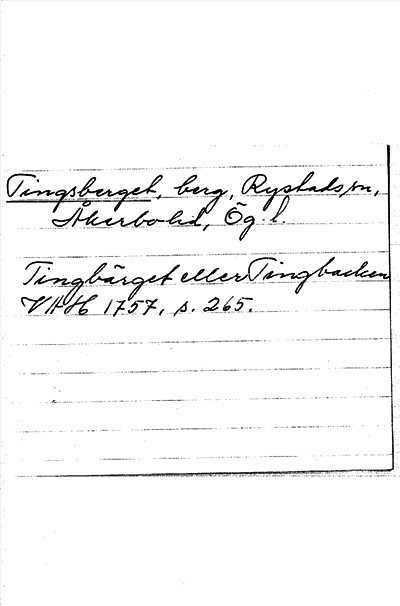 Tingsberget, berg, Rystads sn,
Åkerbo hd, Ög. l.
Tingbärget eller Tingbacken
VAH 1757, s. 265.